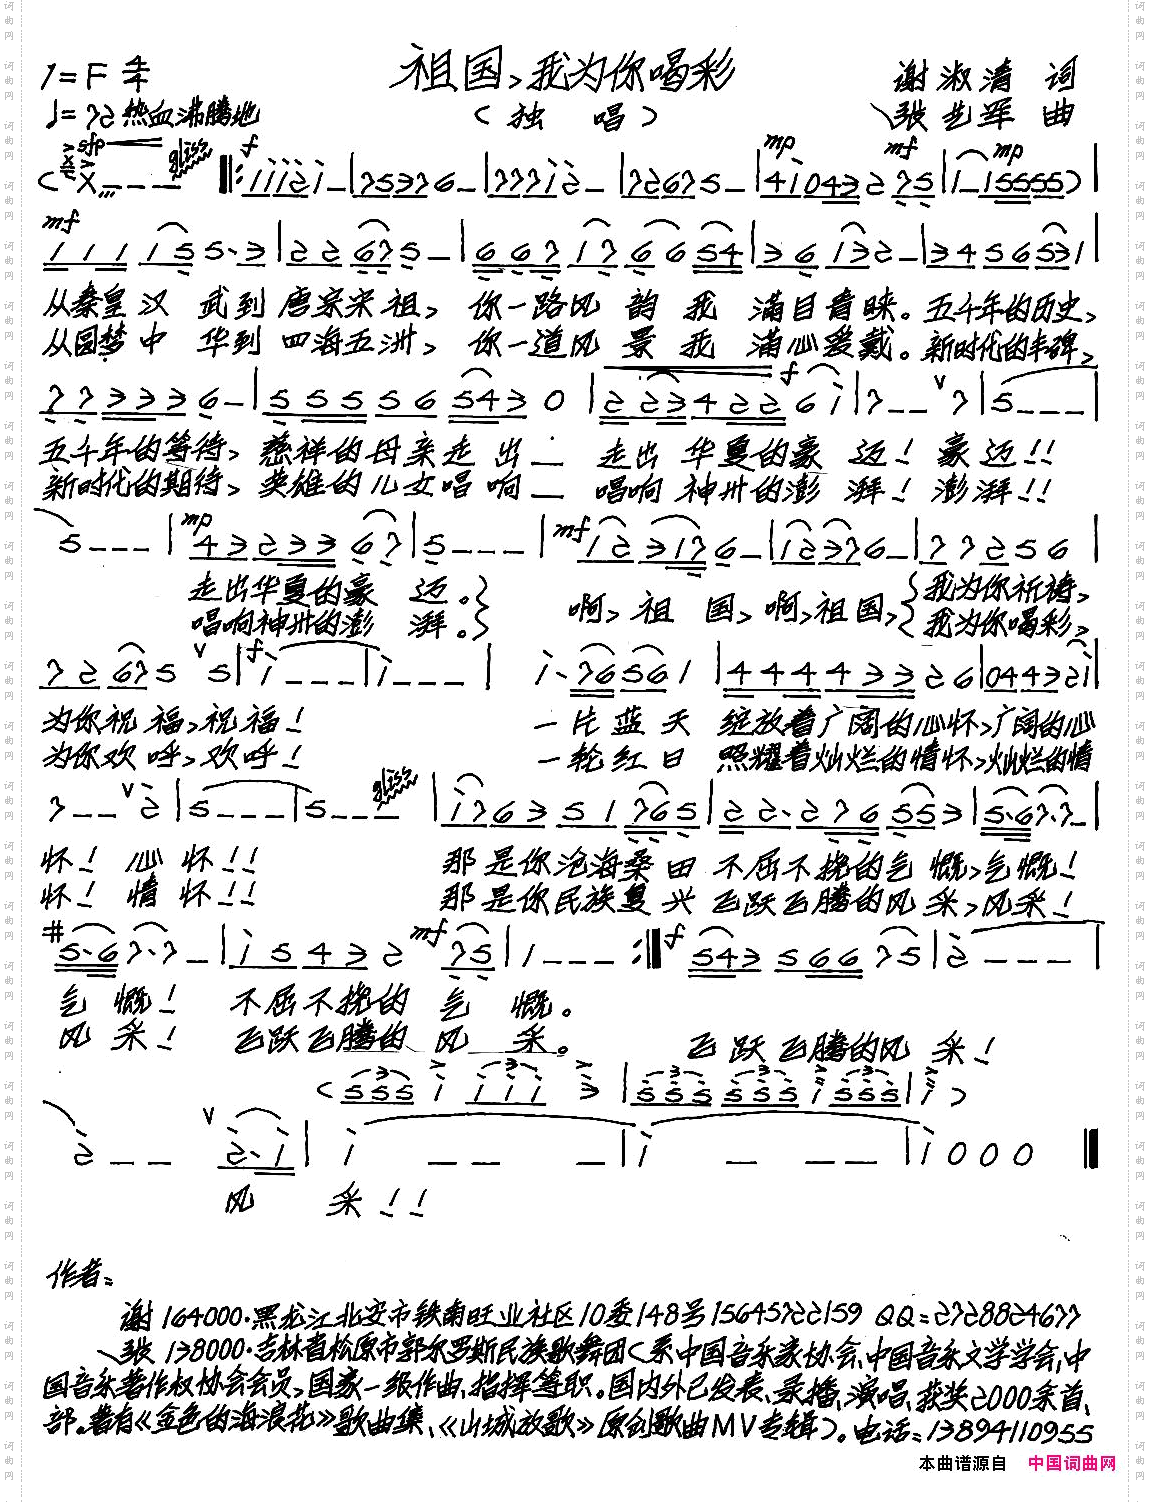 祖国,我为你喝彩
1=F 4/4
谢淑清 词
♩=72 热血沸腾地
(独 唱)
张艺军 曲
sfp gliss f mp mf mp
(X - - - ‖: i i i 2 i - | 7 5 3 7 6 - | 7 7 7 i 2 - | 7 2 6 7 5 - | 4 i 0 4 3 2 7 5 | 1 - 1 5 5 5 5) |
mf
1 1 1 1 5 5· 3 | 2 2 6 7 5 - | 6 6 7 1 7 6 6 5 4 | 3 6 1 3 2 - | 3 4 5 6 5 3 1 |
从秦皇 汉 武到 唐宗宋祖, 你一路风 韵 我 满目青睐。五千年的历史,
从圆梦 中 华到 四海五洲, 你一道风 景 我 满心爱戴。新时代的丰碑,
f
7 7 3 3 3 6 - | 5 5 5 5 6 5 4 3 0 | 2 2 3 4 2 2 6 i | 7 - - 7 | 5 - - - |
五千年的等待, 慈祥的母亲走 出 — 走出 华夏的豪 迈! 豪迈!!
新时代的期待, 英雄的儿女唱 响 — 唱响 神州的澎 湃! 澎湃!!
mp mf
5 - - - | 4 3 2 3 3 6 7 | 5 - - - | 1 2 3 1 7 6 - | 1 2 3 7 6 - | 7 7 2 5 6 |
走出华夏的豪 迈。 啊,祖 国,啊,祖国, 我为你祈祷,
唱响神州的澎 湃。 我为你喝彩,
f
7 2 6 7 5 5 | i - - - | i - - - | i· 7 6 5 6 1 | 4 4 4 4 3 3 2 6 | 0 4 4 3 2 i |
为你祝 福,祝 福! 一片 蓝 天 绽放着广阔的心怀,广阔的心
为你欢 呼,欢 呼! 一轮红日 照耀着灿烂的情怀,灿烂的情
gliss
7 - - 2 | 5 - - - | 5 - - - | i 7 6 3 5 1 7 6 5 | 2 2· 2 7 6 5 5 3 | 5· 6 7· 7 - |
怀! 心 怀!! 那是你沧海桑田 不屈不挠的气 慨,气慨!
怀! 情 怀!! 那是你民族复兴 飞跃飞腾的风 采,风采!
mf f
#5· 6 7· 7 - | i 5 4 3 2 7 5 | 1 - - - :‖ 5 4 3 5 6 6 7 5 | 2 - - - |
气 慨! 不屈不挠的 气 慨。
风 采! 飞跃飞腾的 风 采。 飞跃飞腾的风 采!
(5 5 5 i i i i 3 | 5 5 5 5 5 5 i 5 5 5 | i )
2 - - 2· i | i - - - | i - - - | i 0 0 0 ‖
风 采!!
作者:
谢 164000·黑龙江北安市铁南旺业社区10委148号 15645722159 QQ=2728824677
张 138000·吉林省松原市郭尔罗斯民族歌舞团(系中国音乐家协会、中国音乐文学学会、中
国音乐著作权协会会员,国家一级作曲、指挥等职。国内外已发表、录播、演唱、获奖2000余首、
部。著有《金色的海浪花》歌曲集、《山城放歌》原创歌曲MV专辑)。电话:13894110955
本曲谱源自 中国词曲网